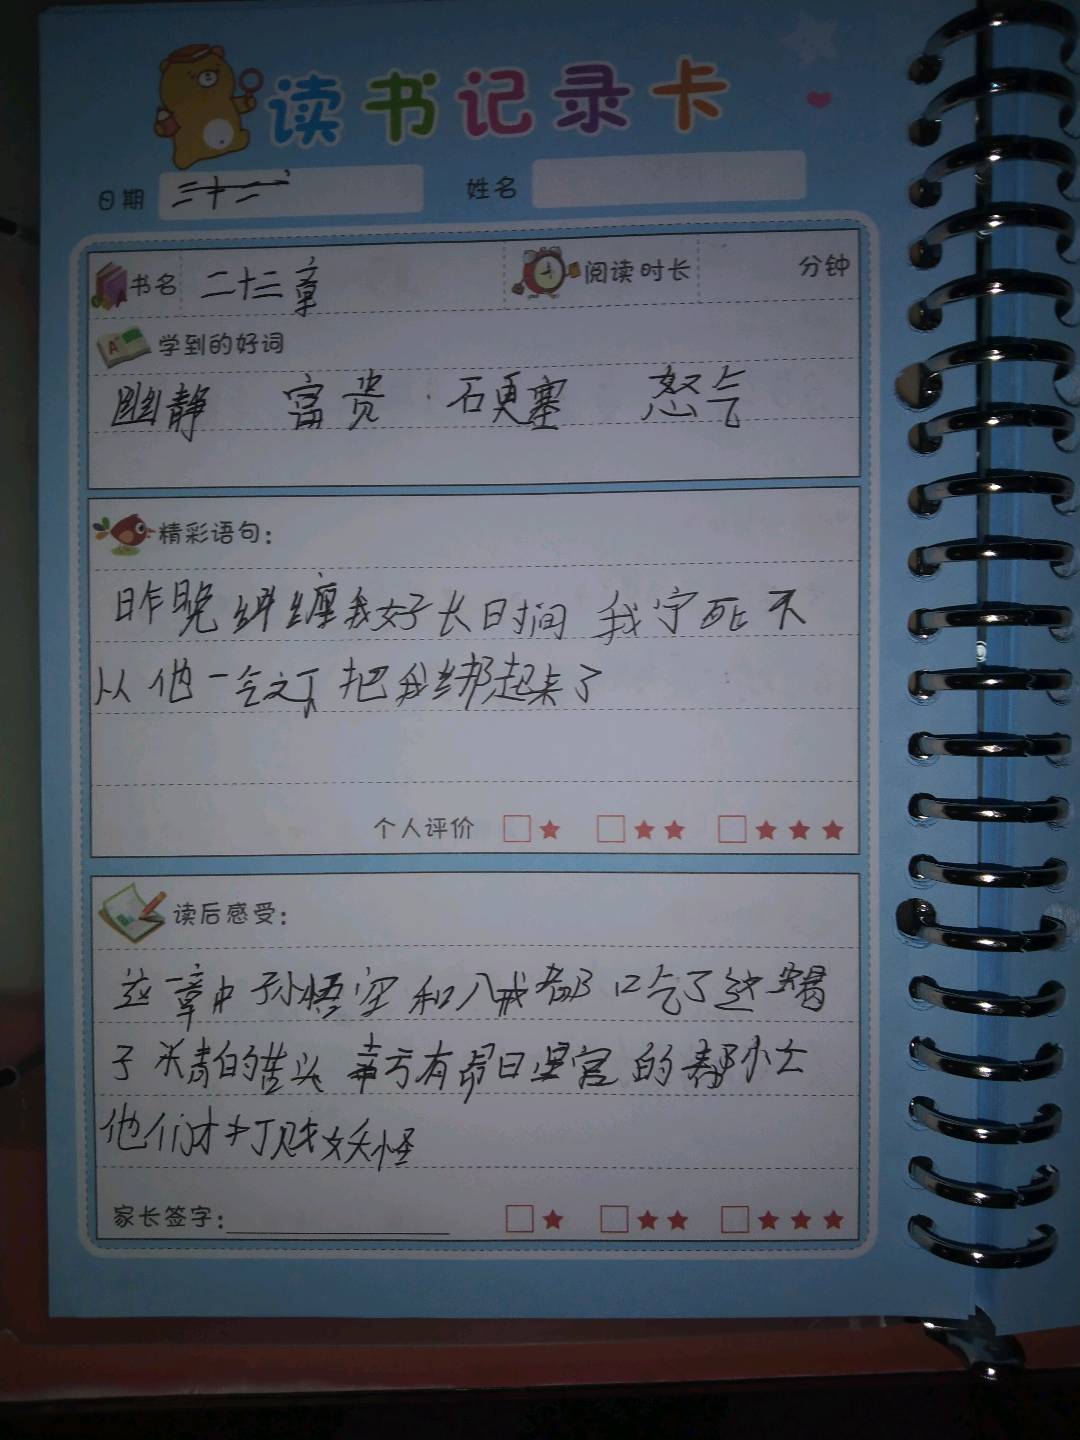 读书记录卡
日期 三十二 姓名
书名 二十三章 阅读时长 分钟
学到的好词
幽静 富贵 硬塞 怒气
精彩语句：
昨晚纠缠我好长时间 我宁死不
从他一气之下把我绑起来了
个人评价
读后感受：
这一章中孙悟空和八戒都吃了这蝎
子精的苦头 幸亏有昴日星官的帮忙
他们才打败妖怪
家长签字：